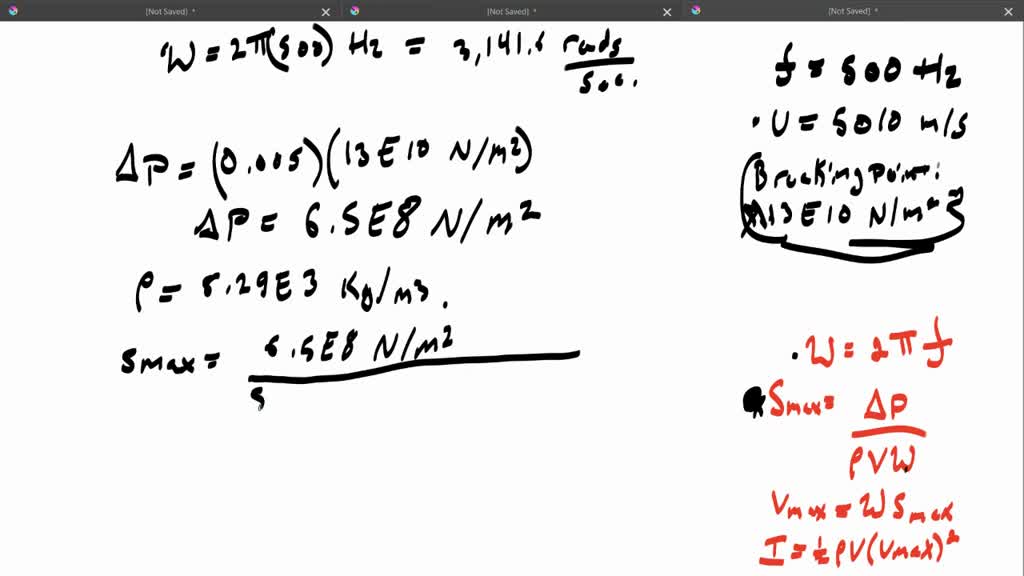 [Not Saved] * × [Not Saved] * × [Not Saved] * ×
W = 2π(500) Hz = 3,141.6 rads / sec.
ΔP = (0.005)(13E10 N/m²)
ΔP = 6.5E8 N/m²
ρ = 5.29E3 Kg/m3.
Smax = 6.5E8 N/m²
5
f = 500 Hz
· U = 5010 m/s
Breaking Point:
13E10 N/m²
· W = 2πf
Smax = ΔP / ρVW
Vmax = W Smax
I = ½ρV(Vmax)²